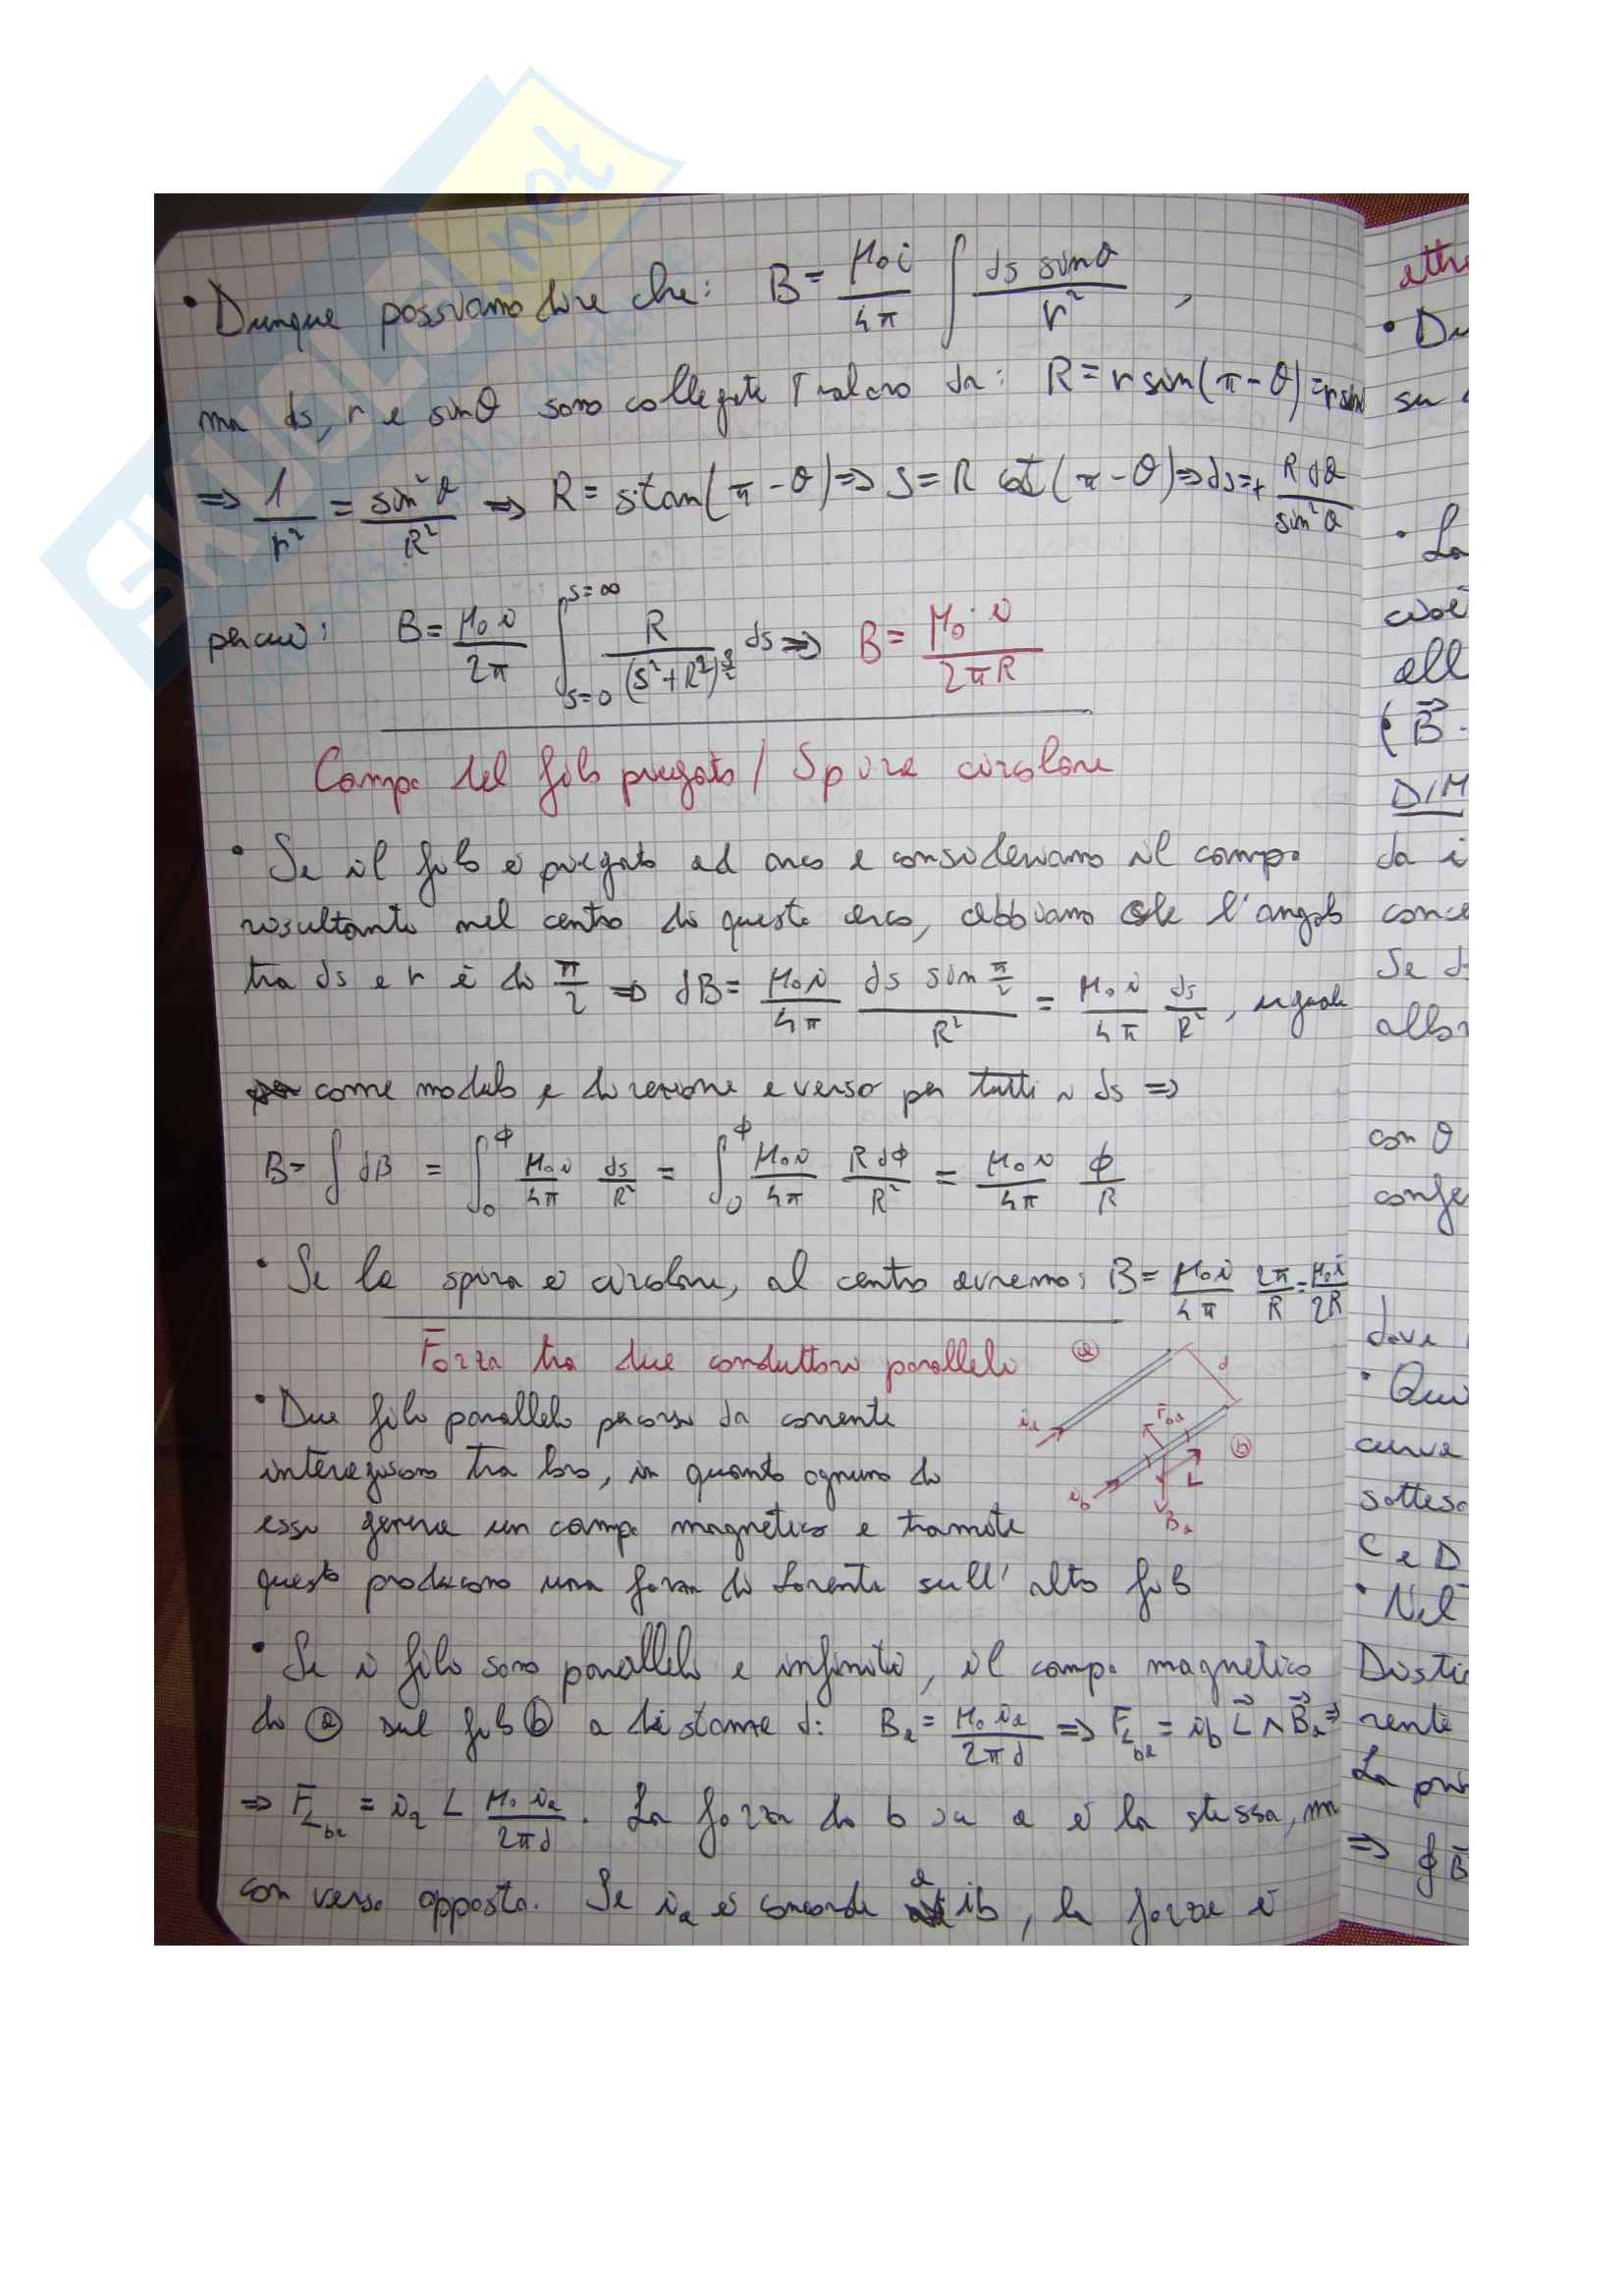 • Dunque possiamo dire che: B = μ₀i/4π ∫ ds sinθ/r² ,
ma ds, r e sinθ sono collegate da: R = r sin(π-θ) = r sinθ
⇒ 1/r² = sin²θ/R² ⇒ R = s·tan(π-θ) ⇒ s = R cot(π-θ) ⇒ ds = + R dθ/sin²θ
per cui: B = μ₀i/2π ∫_{s=0}^{s=∞} R/(s²+R²)^{3/2} ds ⇒ B = μ₀·i/2πR
Campo del filo piegato / Spira circolare
• Se il filo è piegato ad arco e consideriamo il campo
risultante nel centro di questo arco, abbiamo che l'angolo
tra ds e r è di π/2 ⇒ dB = μ₀i/4π ds sin π/2 / R² = μ₀i/4π ds/R² , uguale
come modulo e direzione e verso per tutti i ds ⇒
B = ∫ dB = ∫₀^ϕ μ₀i/4π ds/R² = ∫₀^ϕ μ₀i/4π R dϕ/R² = μ₀i/4π ϕ/R
• Se la spira è circolare, al centro avremo: B = μ₀i/4π 2π/R = μ₀i/2R
Forza tra due conduttori paralleli
• Due fili paralleli percorsi da corrente
interagiscono tra loro, in quanto ognuno di
essi genera un campo magnetico e tramite
questo producono una forza di Lorentz sull'altro filo
• Se i fili sono paralleli e infiniti, il campo magnetico
di ⓐ sul filo ⓑ a distanza d: Bₐ = μ₀iₐ/2πd ⇒ F_{L ba} = i_b L⃗ ∧ B⃗ₐ ⇒
⇒ F_{L ba} = i₂ L μ₀iₐ/2πd . La forza di b su a è la stessa, ma
con verso opposto. Se iₐ è concorde a ib, la forza è
ⓐ
d
iₐ
F_{ba}
ⓑ
L
i_b
Bₐ
• Du
su
• La
cioè
all
(B⃗ ·
DIM
da i
conce
Se d
allor
con θ
confe
dove
• Qui
curva
sottes
C e D
• Nel
Disti
rente
La pri
⇒ ∮B
SKUOLA.net